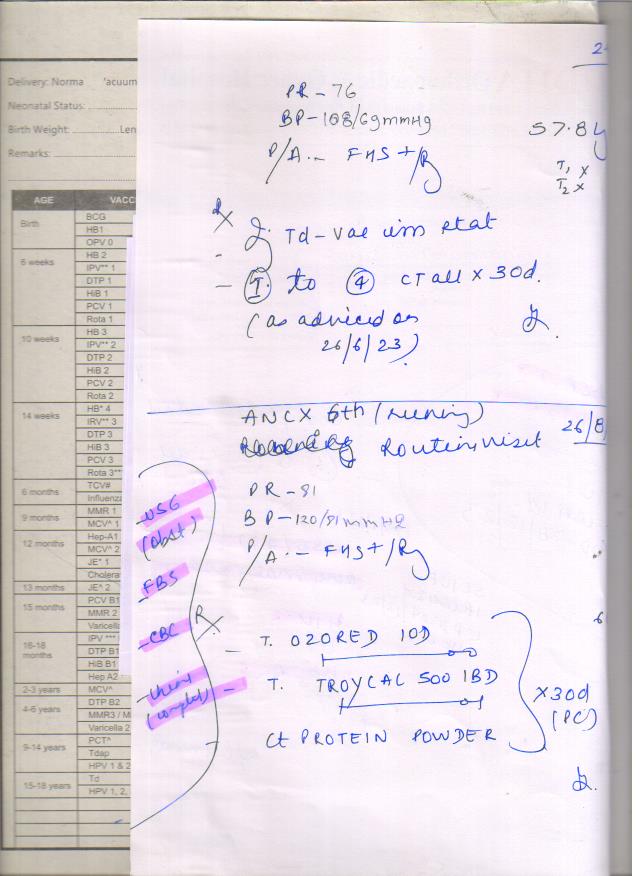 Delivery: Norma 'acuum
Neonatal Status:
Birth Weight: Len
Remarks:
AGE VACC
Birth BCG
HB1
OPV 0
6 weeks HB 2
IPV** 1
DTP 1
HiB 1
PCV 1
Rota 1
10 weeks HB 3
IPV** 2
DTP 2
HiB 2
PCV 2
Rota 2
14 weeks HB* 4
IRV** 3
DTP 3
HiB 3
PCV 3
Rota 3**
6 months TCV#
Influenza
9 months MMR 1
MCV^ 1
12 months Hep-A1
MCV^ 2
JE* 1
Cholera
13 months JE^ 2
15 months PCV B1
MMR 2
Varicella
16-18 months IPV ***
DTP B1
HiB B1
Hep A2
2-3 years MCV^
4-6 years DTP B2
MMR3 / M
Varicella 2
9-14 years PCT^
Tdap
HPV 1 & 2
15-18 years Td
HPV 1, 2,
PR - 76
BP - 108/69mmHg
57.8
P/A. - FHS +/R
T1 x
T2 x
Rx
Td-Vac im stat
- T. to 4 CT all x 30d.
(as adviced on
26/6/23)
ANCX 6th (running)
Routine visit 26/8
PR - 81
BP - 120/81 mmHg
P/A. - FHS +/R
- USG
(obst)
- FBS
- CBC
- urine
(complet)
Rx
- T. O2ORED 1OD
- T. TROYCAL 500 1BD
- Ct PROTEIN POWDER
x30d
(PC)